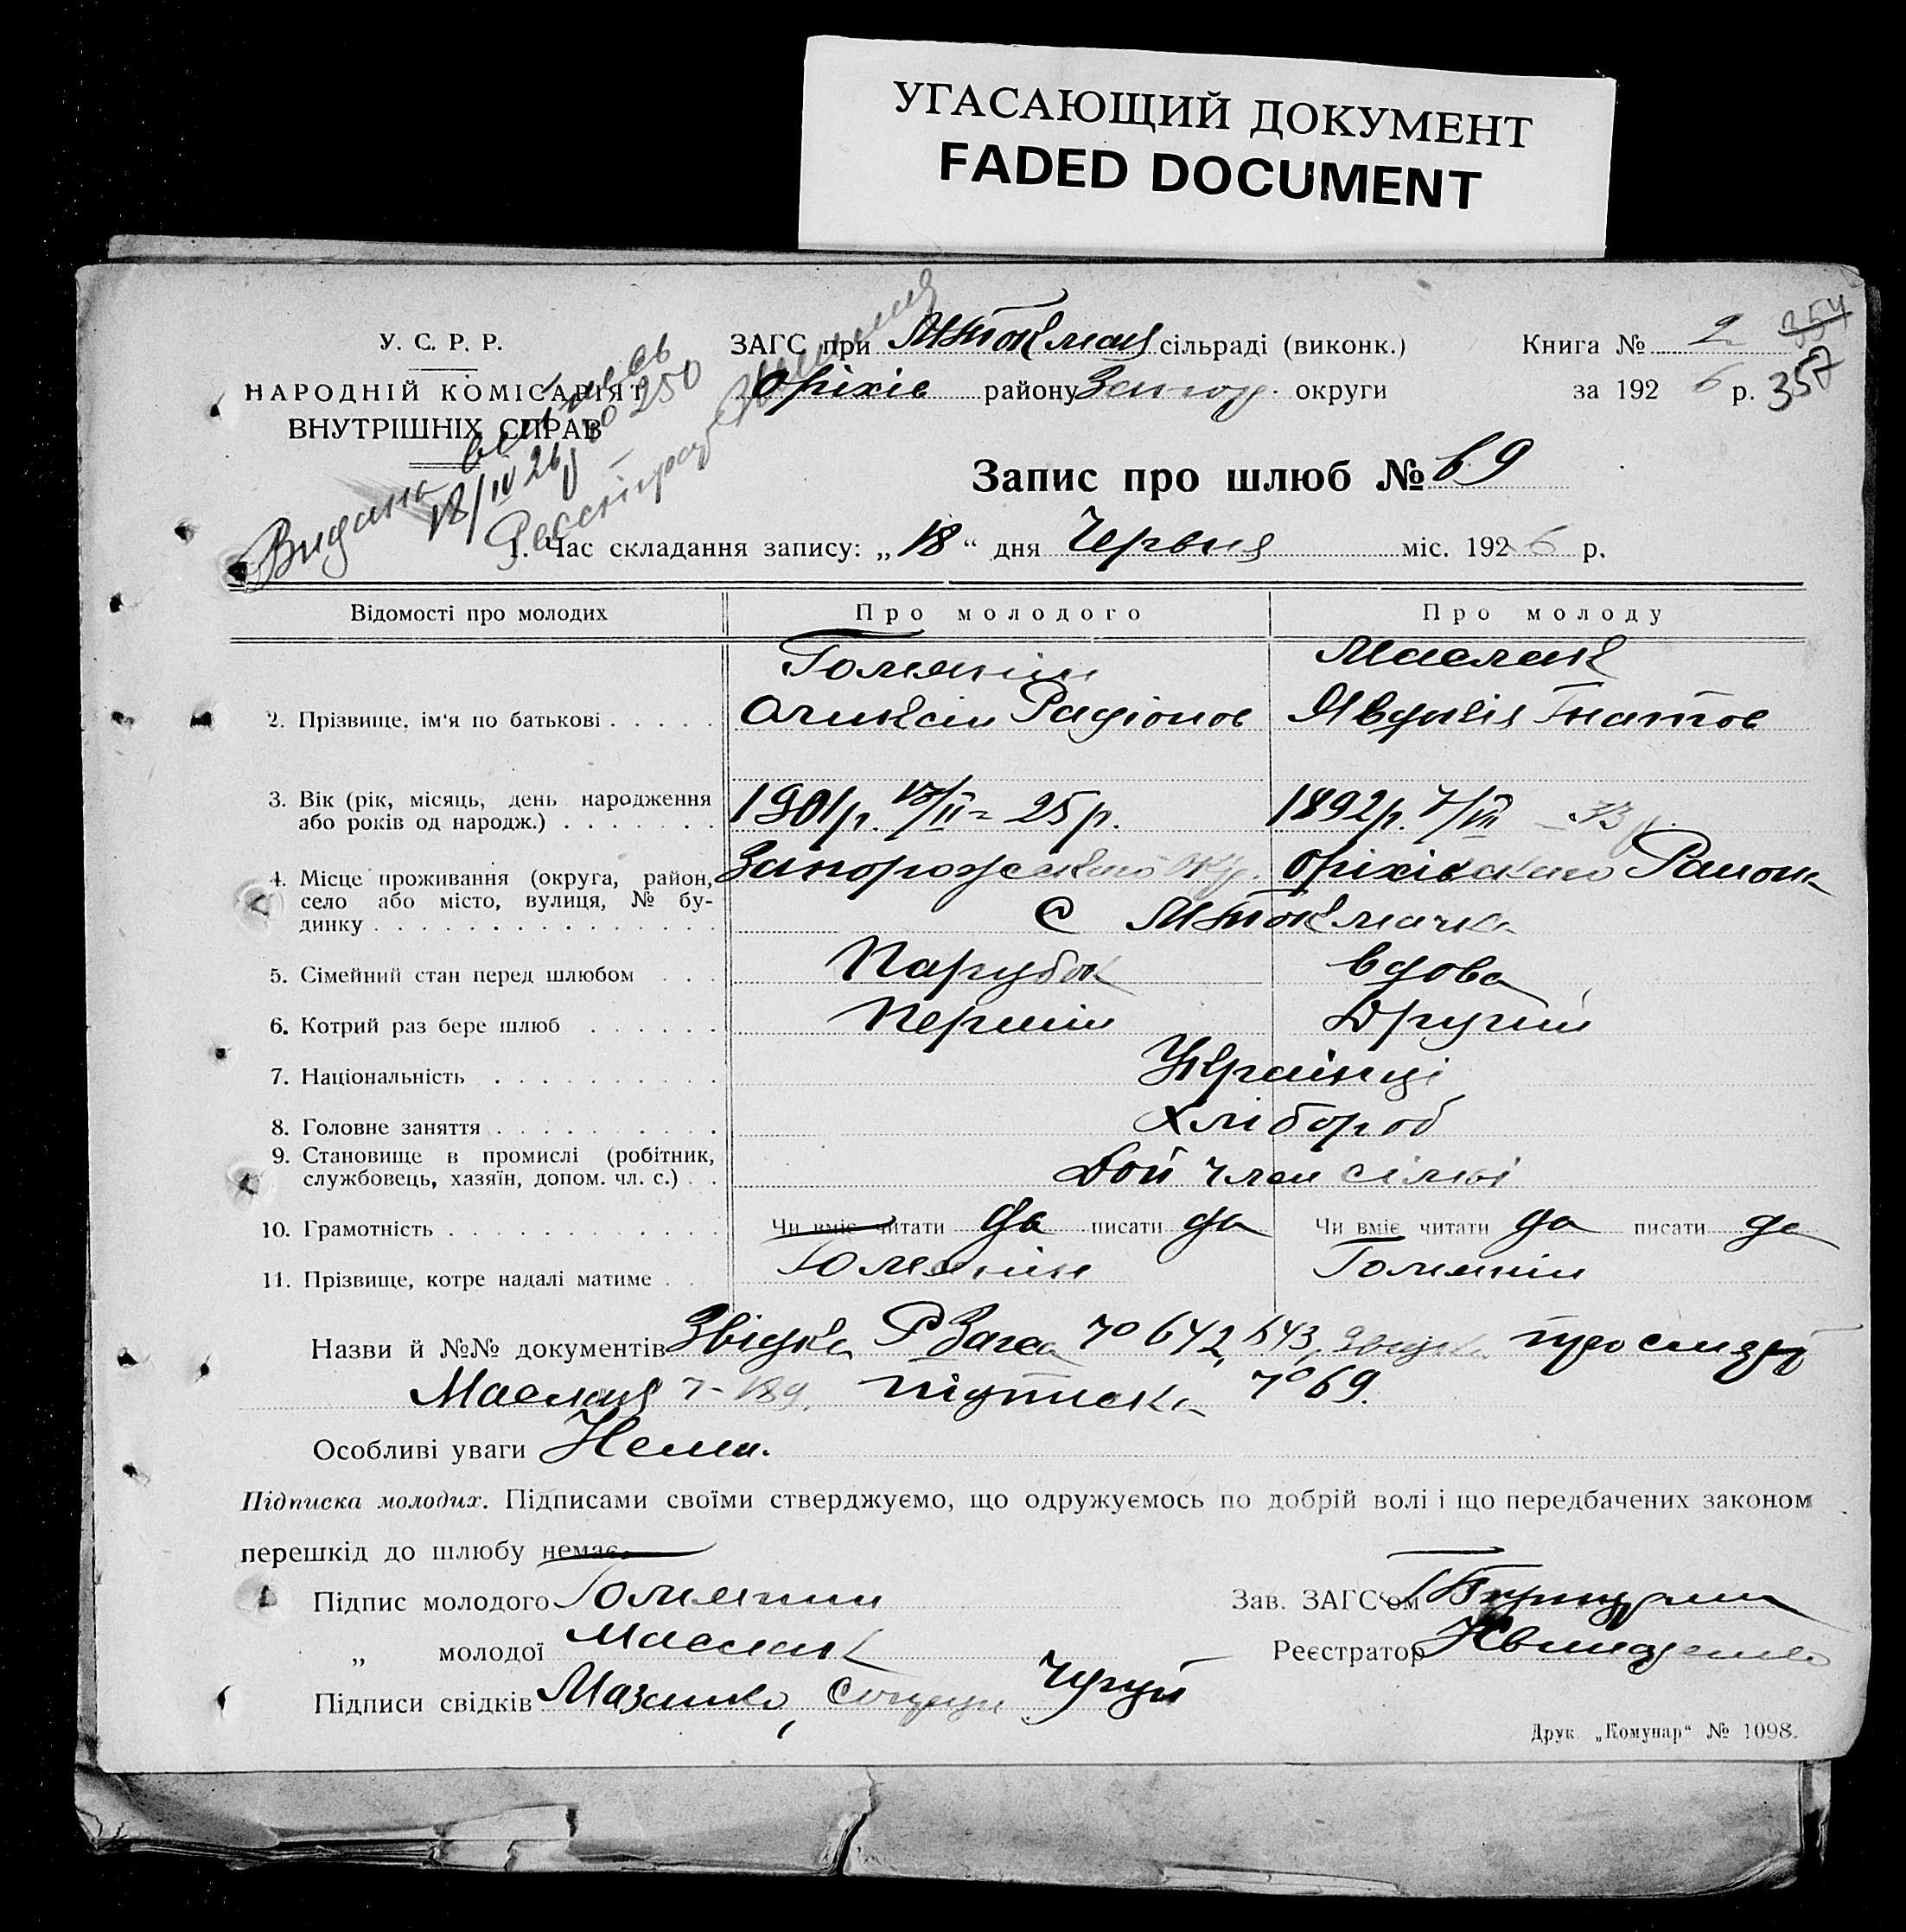 УГАСАЮЩИЙ ДОКУМЕНТ
FADED DOCUMENT
У. С. Р. Р.
НАРОДНІЙ КОМІСАРІЯТ
ВНУТРІШНІХ СПРАВ
ЗАГС при сільраді (виконк.)
Оріхів району Запор. округи
Книга № 2 354
за 1926 р. 357
Видана
18/IV 26 250
Запис про шлюб № 69
1. Час складання запису: „18“ дня Червня міс. 1926 р.
Відомості про молодих Про молодого Про молоду
Маслак
2. Прізвище, ім'я по батькові . . . . . Радіонов Явдокія Гнатов
3. Вік (рік, місяць, день народження
або років од народж.) . . . . . . . 1901р. 18/II - 25р. 1892р. 7/VII - 33р.
4. Місце проживання (округа, район,
село або місто, вулиця, № бу-
динку . . . . . . . . . . . . . . . Запорожської Окр. Оріхівського Району
С МТокмачка
5. Сімейний стан перед шлюбом . . . Парубок вдова
6. Котрий раз бере шлюб . . . . . . Перший Другий
7. Національність . . . . . . . . . . Українці
8. Головне заняття . . . . . . . . . . Хлібороб
9. Становище в промислі (робітник,
службовець, хазяїн, допом. чл. с.) . . Доп член сімьї
10. Грамотність . . . . . . . . . . . . Чи вміє читати да писати да Чи вміє читати да писати да
11. Прізвище, котре надалі матиме . .
Назви й №№ документів Звідка Загса № 642, 643, звідка про смерть
Маслака № 189, підписка № 69.
Особливі уваги Нема.
Підписка молодих. Підписами своїми стверджуємо, що одружуємось по добрій волі і що передбачених законом
перешкід до шлюбу немає.
Підпис молодого
Зав. ЗАГС'ом
„ молодої Маслак
Реєстратор
Підписи свідків
Друк „Комунар“ № 1098.